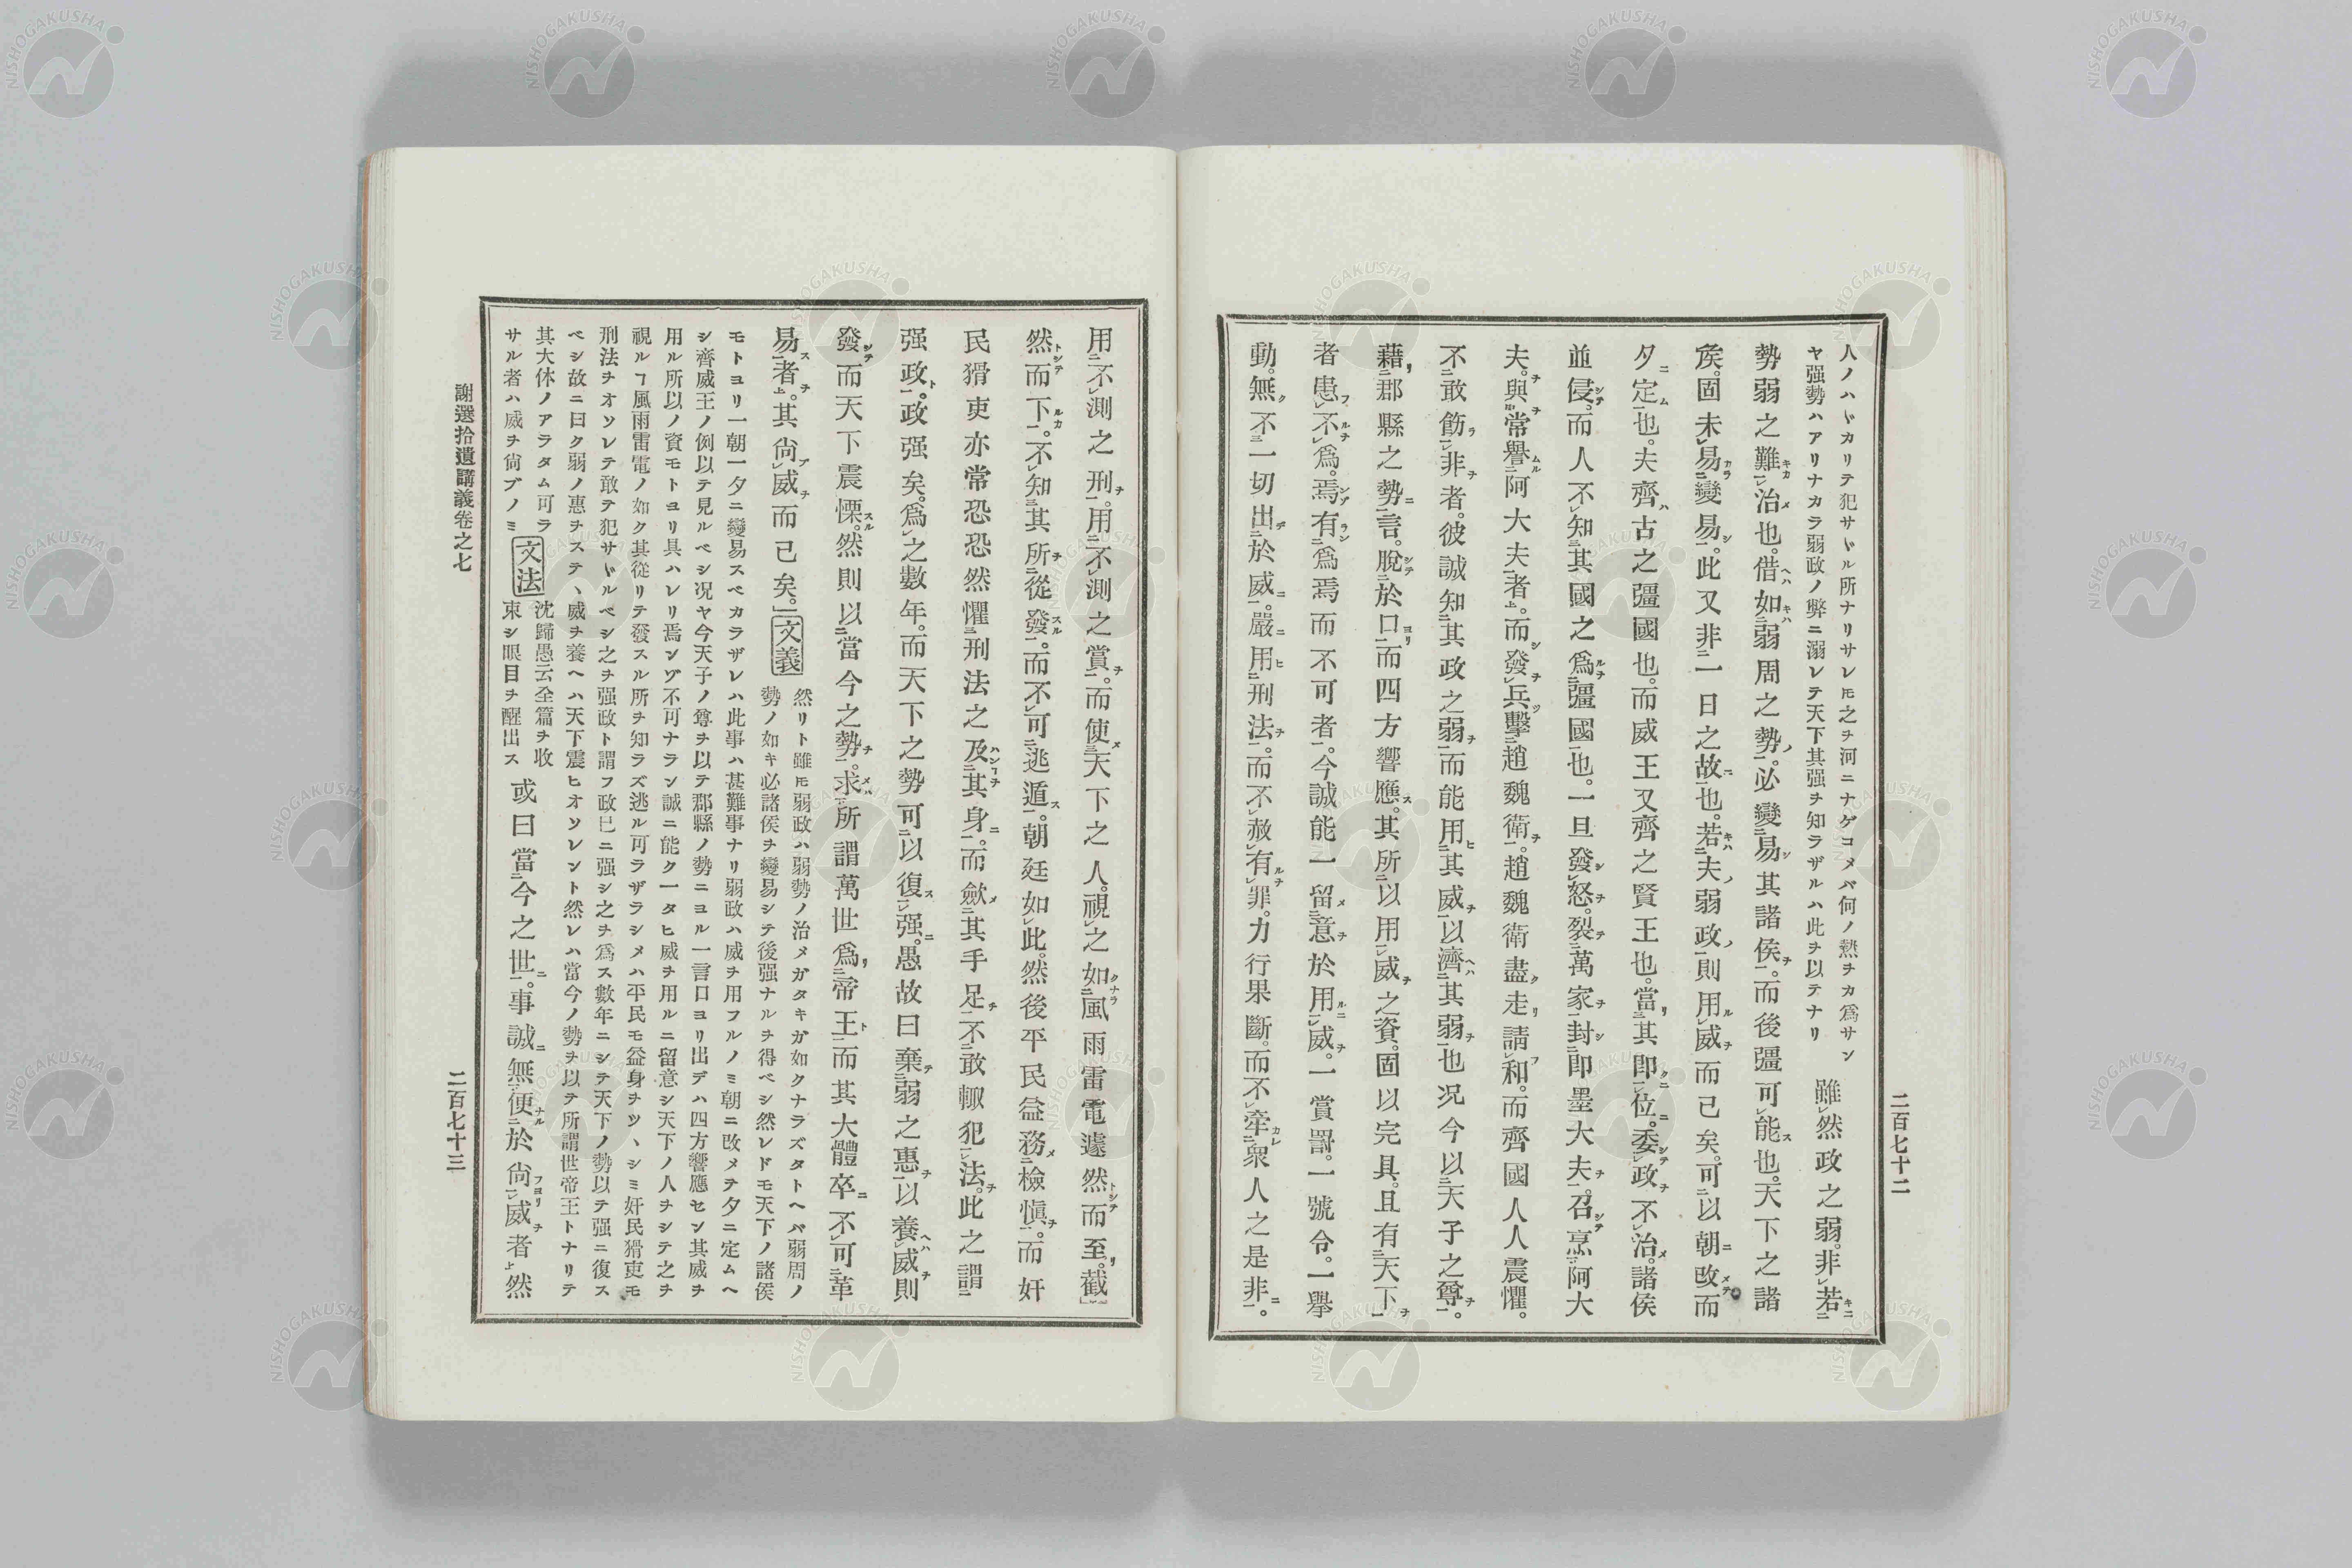 二百七十二
人ノハヾカリテ犯サヾル所ナリサレ𪜈之ヲ河ニナゲコメバ何ノ熱ヲカ爲サン
ヤ强勢ハアリナカラ弱政ノ弊ニ溺レテ天下其强ヲ知ラザルハ此ヲ以テナリ
雖然政之弱。非若
勢弱之難治也。借如弱周之勢。必變易其諸侯。而後彊可能也。天下之諸
矦。固未易變易。此又非一日之故也。若夫弱政則用威而已矣。可以朝改而
夕定也。夫齊古之彊國也。而威王又齊之賢王也。當其卽位。委政不治。諸侯
並侵。而人不知其國之爲彊國也。一旦發怒。裂萬家封卽墨大夫。召烹阿大
夫。與常譽阿大夫者。而發兵擊趙魏衛。趙魏衛盡走請和。而齊國人人震懼。
不敢飾非者。彼誠知其政之弱。而能用其威。以濟其弱也況今以天子之尊。
藉郡縣之勢。言脫於口。而四方響應。其所以用威之資。固以完具。且有天下
者患不爲。焉有爲焉而不可者。今誠能一留意於用威。一賞罰。一號令。一舉
動。無不一切出於威。嚴用刑法。而不赦有罪。力行果斷。而不牽衆人之是非。
用不測之刑。用不測之賞。而使天下之人。視之如風雨雷電遽然而至。截
然而下。不知其所從發。而不可逃遁。朝廷如此。然後平民益務檢愼。而奸
民猾吏亦常恐恐然懼刑法之及其身。而斂其手足。不敢輙犯法。此之謂
强政。政强矣。爲之數年。而天下之勢可以復强。愚故曰棄弱之惠。以養威則
發而天下震慄。然則以當今之勢。求所謂萬世爲帝王。而其大體卒不可革
易者。其尙威而已矣。
文義
然リト雖𪜈弱政ハ弱勢ノ治メガタキガ如クナラズタトヘバ弱周ノ
勢ノ如キ必諸侯ヲ變易シテ後强ナルヲ得ベシ然レドモ天下ノ諸侯
モトヨリ一朝一夕ニ變易スベカラザレハ此事ハ甚難事ナリ弱政ハ威ヲ用フルノミ朝ニ改メテ夕ニ定ムヘ
シ齊威王ノ例以テ見ルベシ况ヤ今天子ノ尊ヲ以テ郡縣ノ勢ニヨル一言口ヨリ出デハ四方響應セン其威ヲ
用ル所以ノ資モトヨリ具ハレリ焉ンゾ不可ナラン誠ニ能ク一タヒ威ヲ用ルニ留意シ天下ノ人ヲシテ之ヲ
視ルヿ風雨雷電ノ如ク其從リテ發スル所ヲ知ラズ逃ル可ラザラシメハ平民モ益身ヲツヽシミ奸民猾吏モ
刑法ヲオソレテ敢テ犯サヾルベシ之ヲ强政ト謂フ政已ニ强シ之ヲ爲ス數年ニシテ天下ノ勢以テ强ニ復ス
ベシ故ニ曰ク弱ノ惠ヲステヽ威ヲ養ヘハ天下震ヒオソレント然レハ當今ノ勢ヲ以テ所謂世帝王トナリテ
其大体ノアラタム可ラ
サル者ハ威ヲ尙ブノミ
文法
沈歸愚云全篇ヲ收
束シ眼目ヲ醒出ス
或曰當今之世。事誠無便於尙威者然
謝選拾遺講義卷之七
二百七十三
NISHOGAKUSHA